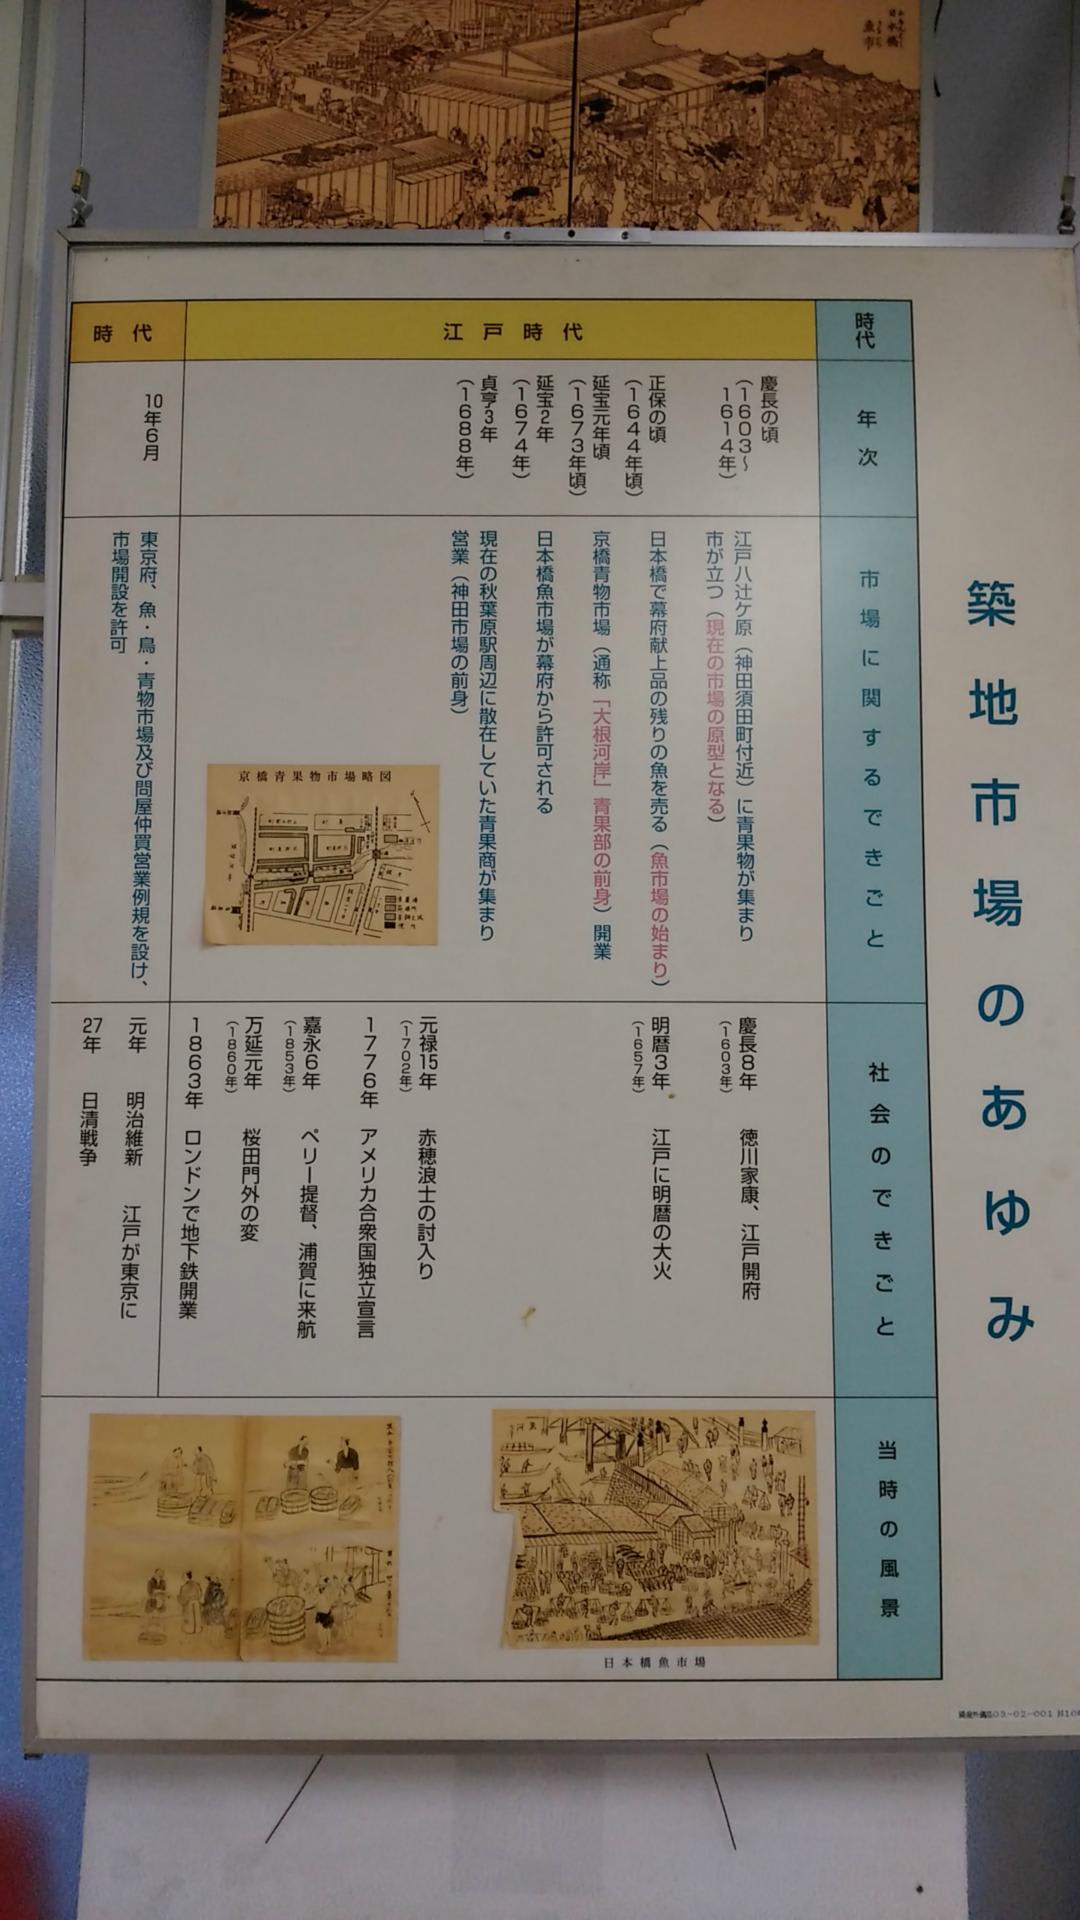 日本橋
魚市
築地市場のあゆみ
時代
年次
市場に関するできごと
社会のできごと
当時の風景
江戸時代
慶長の頃
(1603〜
1614年)
江戸八辻ケ原(神田須田町付近)に青果物が集まり
市が立つ(現在の市場の原型となる)
正保の頃
(1644年頃)
日本橋で幕府献上品の残りの魚を売る(魚市場の始まり)
延宝元年頃
(1673年頃)
京橋青物市場(通称「大根河岸」青果部の前身)開業
延宝2年
(1674年)
日本橋魚市場が幕府から許可される
貞亨3年
(1688年)
現在の秋葉原駅周辺に散在していた青果商が集まり
営業(神田市場の前身)
京橋青果物市場略図
慶長8年
(1603年)
徳川家康、江戸開府
明暦3年
(1657年)
江戸に明暦の大火
元禄15年
(1702年)
赤穂浪士の討入り
1776年 アメリカ合衆国独立宣言
嘉永6年
(1853年)
ペリー提督、浦賀に来航
万延元年
(1860年)
桜田門外の変
1863年 ロンドンで地下鉄開業
日本橋魚市場
時代
10年6月
東京府、魚・鳥・青物市場及び問屋仲買営業例規を設け、
市場開設を許可
元年 明治維新 江戸が東京に
27年 日清戦争